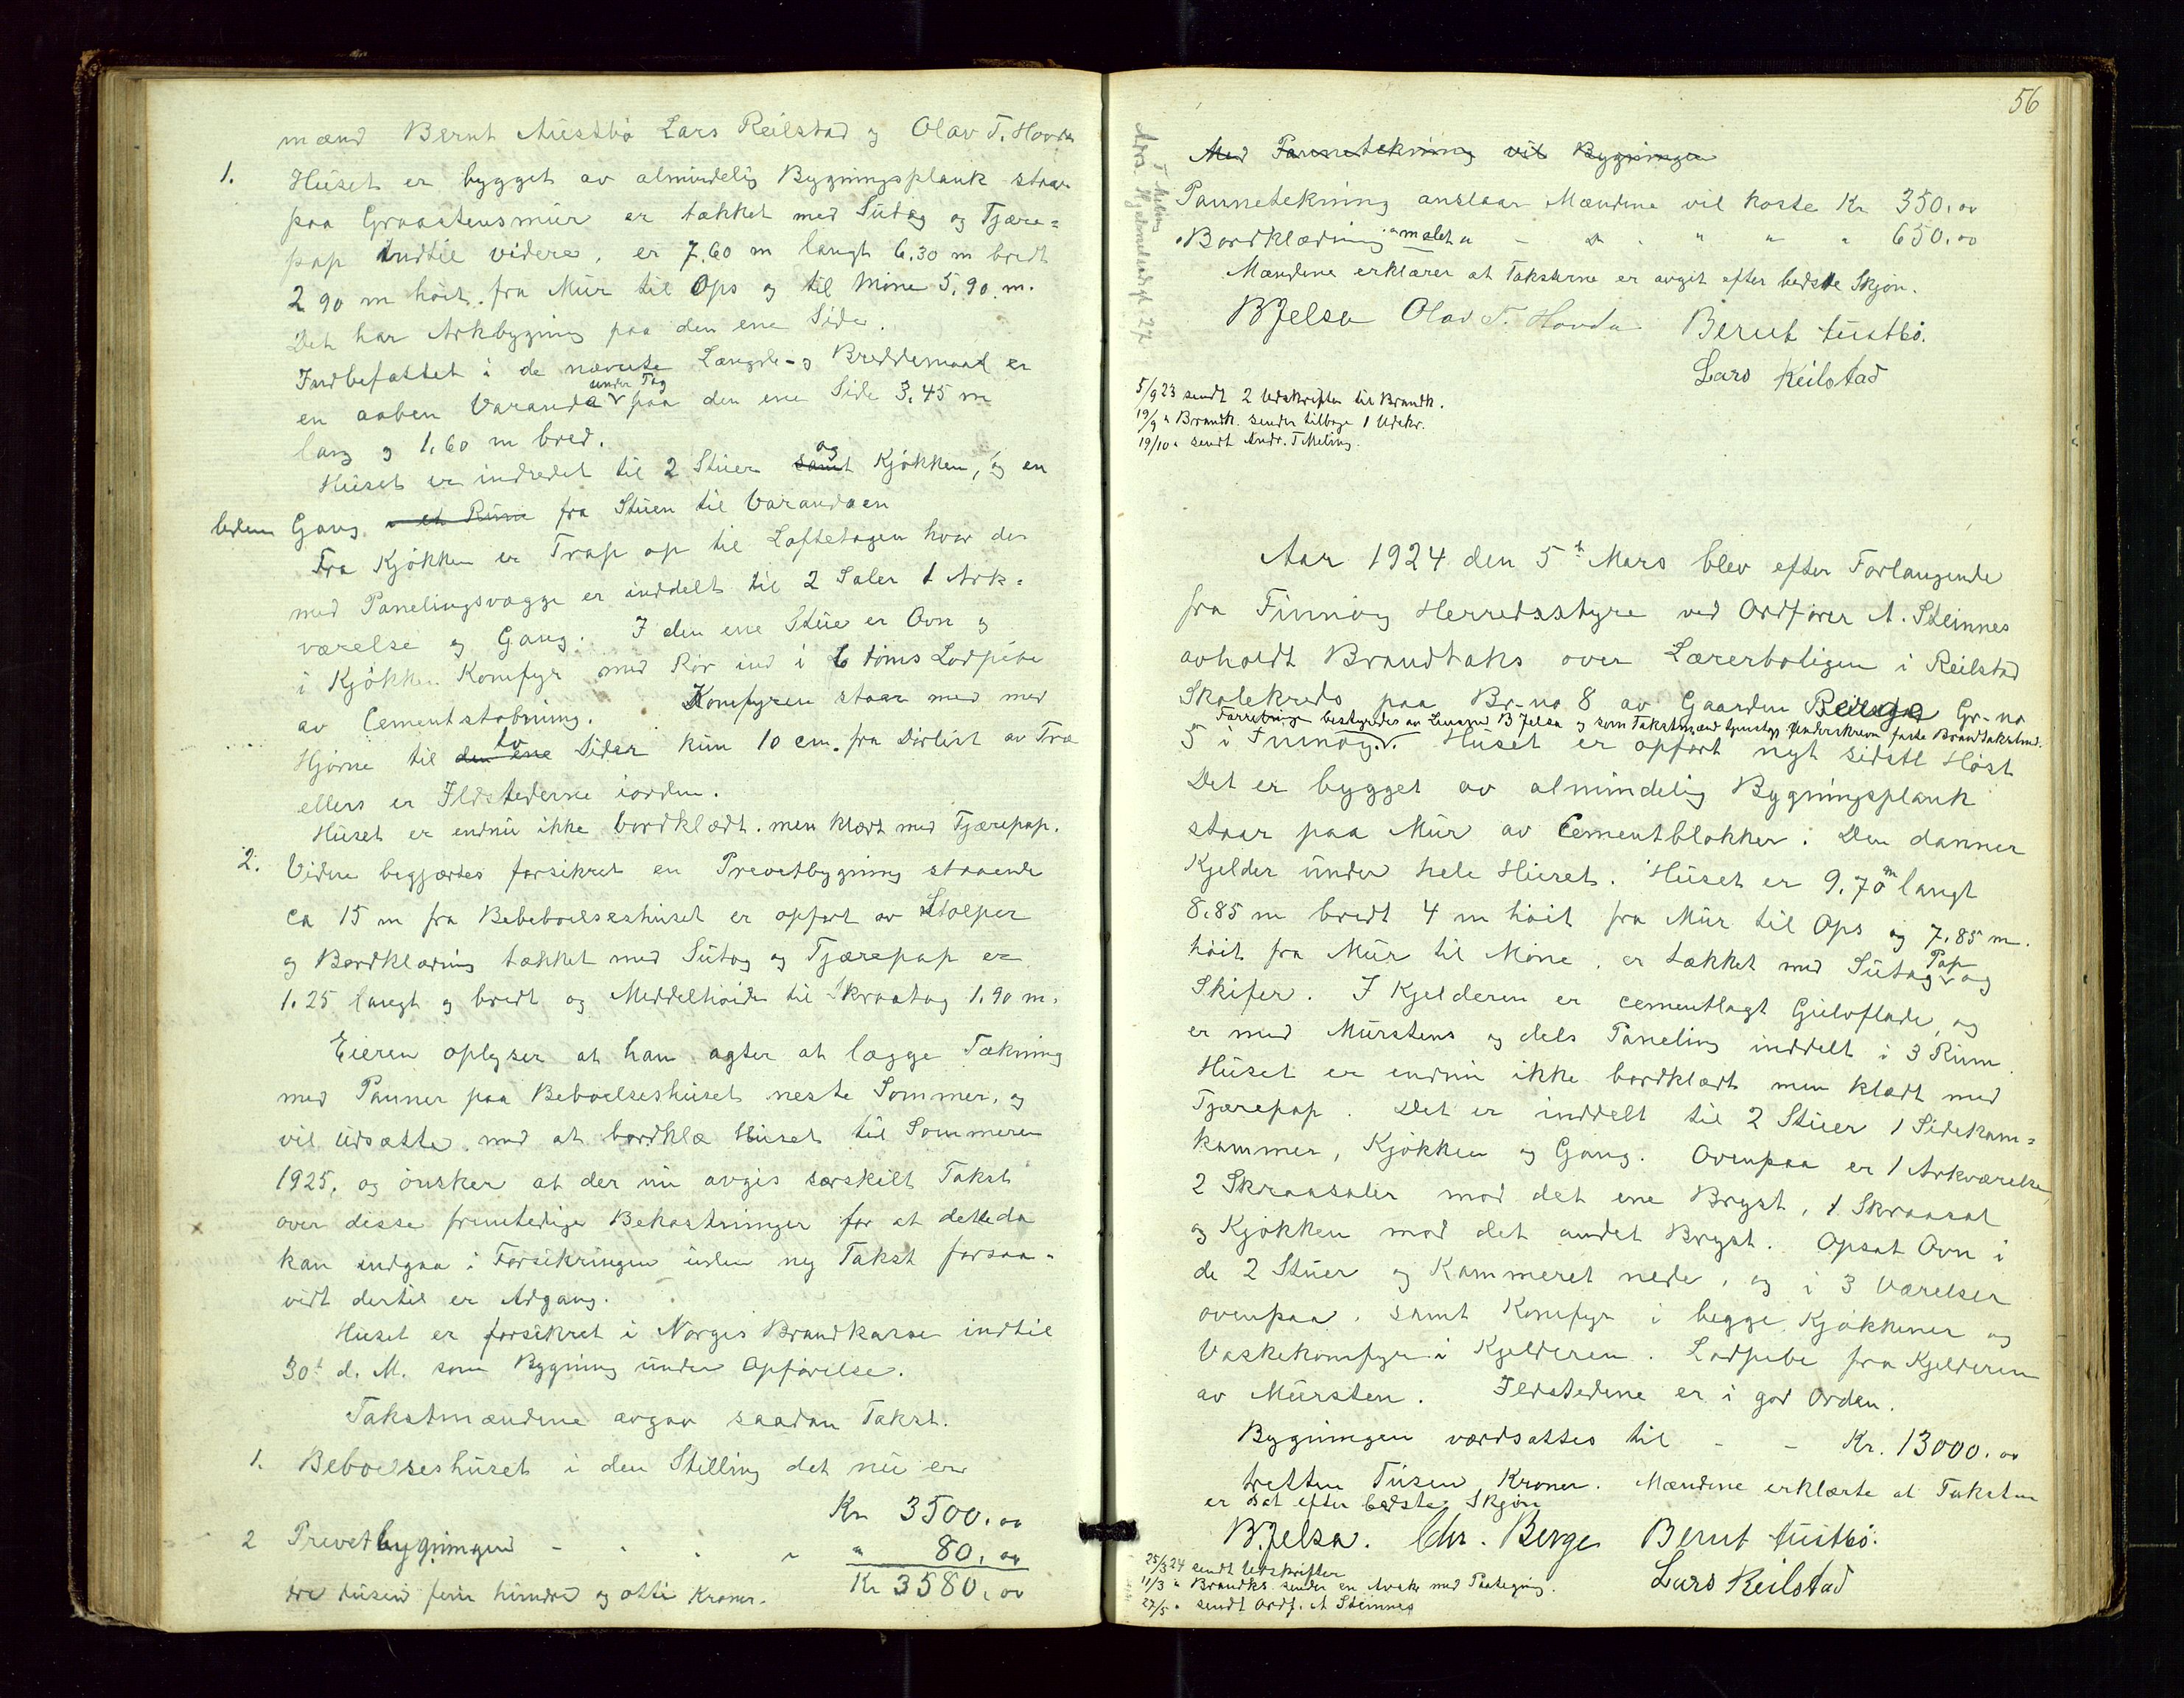 mænd Bernt Austbø Lars Reilstad og Olav T. Hovda
1. Huset er bygget av almindelig Bygningsplank staar
paa Graastensmur er tækket med Sutag og Tjære=
pap indtil videre, er 7,60 m langt 6,30 m bredt
2 90 m høit fra Mur til Ops og til Møne 5,90 m.
Det har Arkbygning paa den ene Side.
Indbefattet i de nævnte Længde- og Breddemaal er
en aaben Varanda under Tag paa den ene Side 3,45 m
lang og 1,60 m bred.
Huset er indredet til 2 Stuer samt og Kjøkken, og en
liden Gang i et Rum fra Stuen til Varandaen
Fra Kjøkken er Trap op til Loftetagen hvor der
med Panelingsvægge er inddelt til 2 Saler 1 Ark=
værelse og Gang. I den ene Stue er Ovn og
i Kjøkken Komfyr med Rør ind i 6 toms Lodpibe
av Cementstøbning. Komfyren staar med med
Hjørne til den ene to Sider kun 10 cm. fra Dørlist av Træ
ellers er Ildstederne iorden.
Huset er endnu ikke bordklædt. men klædt med Tjærepap.
2. Videre begjærtes forsikret en Prevetbygning staaende
ca 15 m fra Bebeboelseshuset er opført av Stolper
og Bordklædning tækket med Sutag og Tjærepap er
1.25 langt og bredt og Meddelhøide til Skraatag 1.90 m.
Eieren oplyser at han agter at lægge Tækning
med Panner paa Beboelseshuset neste Sommer, og
vil udsætte med at bordklæ Huset til Sommeren
1925, og ønsker at der nu avgis særskilt Takst
over disse fremtidige Bekostninger for at dette da
kan indgaa i Forsikringen uden ny Takst forsaa=
vidt dertil er Adgang.
Huset er forsikret i Norges Brandkasse indtil
30t d. M. som Bygning under Opførelse.
Takstmændene avgav saadan Takst.
1. Beboelseshuset i den Stilling det nu er
Kr 3500,00
2 Prevetbygningen - - - " " 80,00
tre tusend fem hundre og otti Kroner. Kr 3580,00
56
Med Pannetekning vil Bygningen
Pannetekning anslaar Mændene vil koste Kr 350,00
"Bordklædning " malet " - " " " " 650,00
Mændene erklærer at Taksterne er avgit efter bedste Skjøn.
B Jelsa Olav T. Hovda Bernt Austbø.
Lars Reilstad
5/9 23 sendt 2 Udskrifter til Brandk.
19/9 " Brandk. sender tilbage 1 Udskr.
19/10 " sendt Andr. T Meling.
Aar 1924 den 5t Mars blev efter Forlangende
fra Finnøy Herredsstyre ved Ordfører A. Steinnes
avholdt Brandtakst over Lærerboligen i Reilstad
Skolekreds paa Br-no 8 av Gaarden Gr-no
Forretning bestyredes av Lensmd B Jelsa og som Takstmænd tjenstgj Underskrevn faste Brandtakstmd.
5 i Finnøy. Huset er opført nyt sidste Høst
Det er bygget av almindelig Bygningsplank
staar paa Mur av Cementblokker. Den danner
Kjelder under hele Huset. Huset er 9.70 m langt
8.85 m bredt 4 m høit fra Mur til Ops og 7.85 m.
høit fra Mur til Møne, er tækket med Sutag Pap og
Skifer. I Kjelderen er cementlagt Gulvflade, og
er med Murstens og dels Paneling inddelt i 3 Rum
Huset er endnu ikke bordklædt men klædt med
Tjærepap. Det er inddelt til 2 Stuer 1 Sidekam=
kammer, Kjøkken og Gang. Ovenpaa er 1 Arkværelse,
2 Skraasaler mod det ene Bryst, 1 Skraasal
og Kjøkken mod det andet Bryst. Opsat Ovn i
de 2 Stuer og Kammeret nede, og i 3 Værelser
ovenpaa, samt Komfyr i begge Kjøkkener og
Vaskekomfyr i Kjelderen. Lodpibe fra Kjelderen
av Mursten. Ildstedene er i god Orden.
Bygningen værdsattes til - - Kr. 13000,00
tretten Tusen Kroner. Mændene erklærte at Taksten
er sat efter bedste Skjøn
B. Jelsa. Chr. Berge Bernt Austbø.
Lars Reilstad
25/3 24 sendt Udskrifter
11/3 " Brandks. sender en Avskr med Paategning.
27/5 " sendt Ordf. A Steinnes